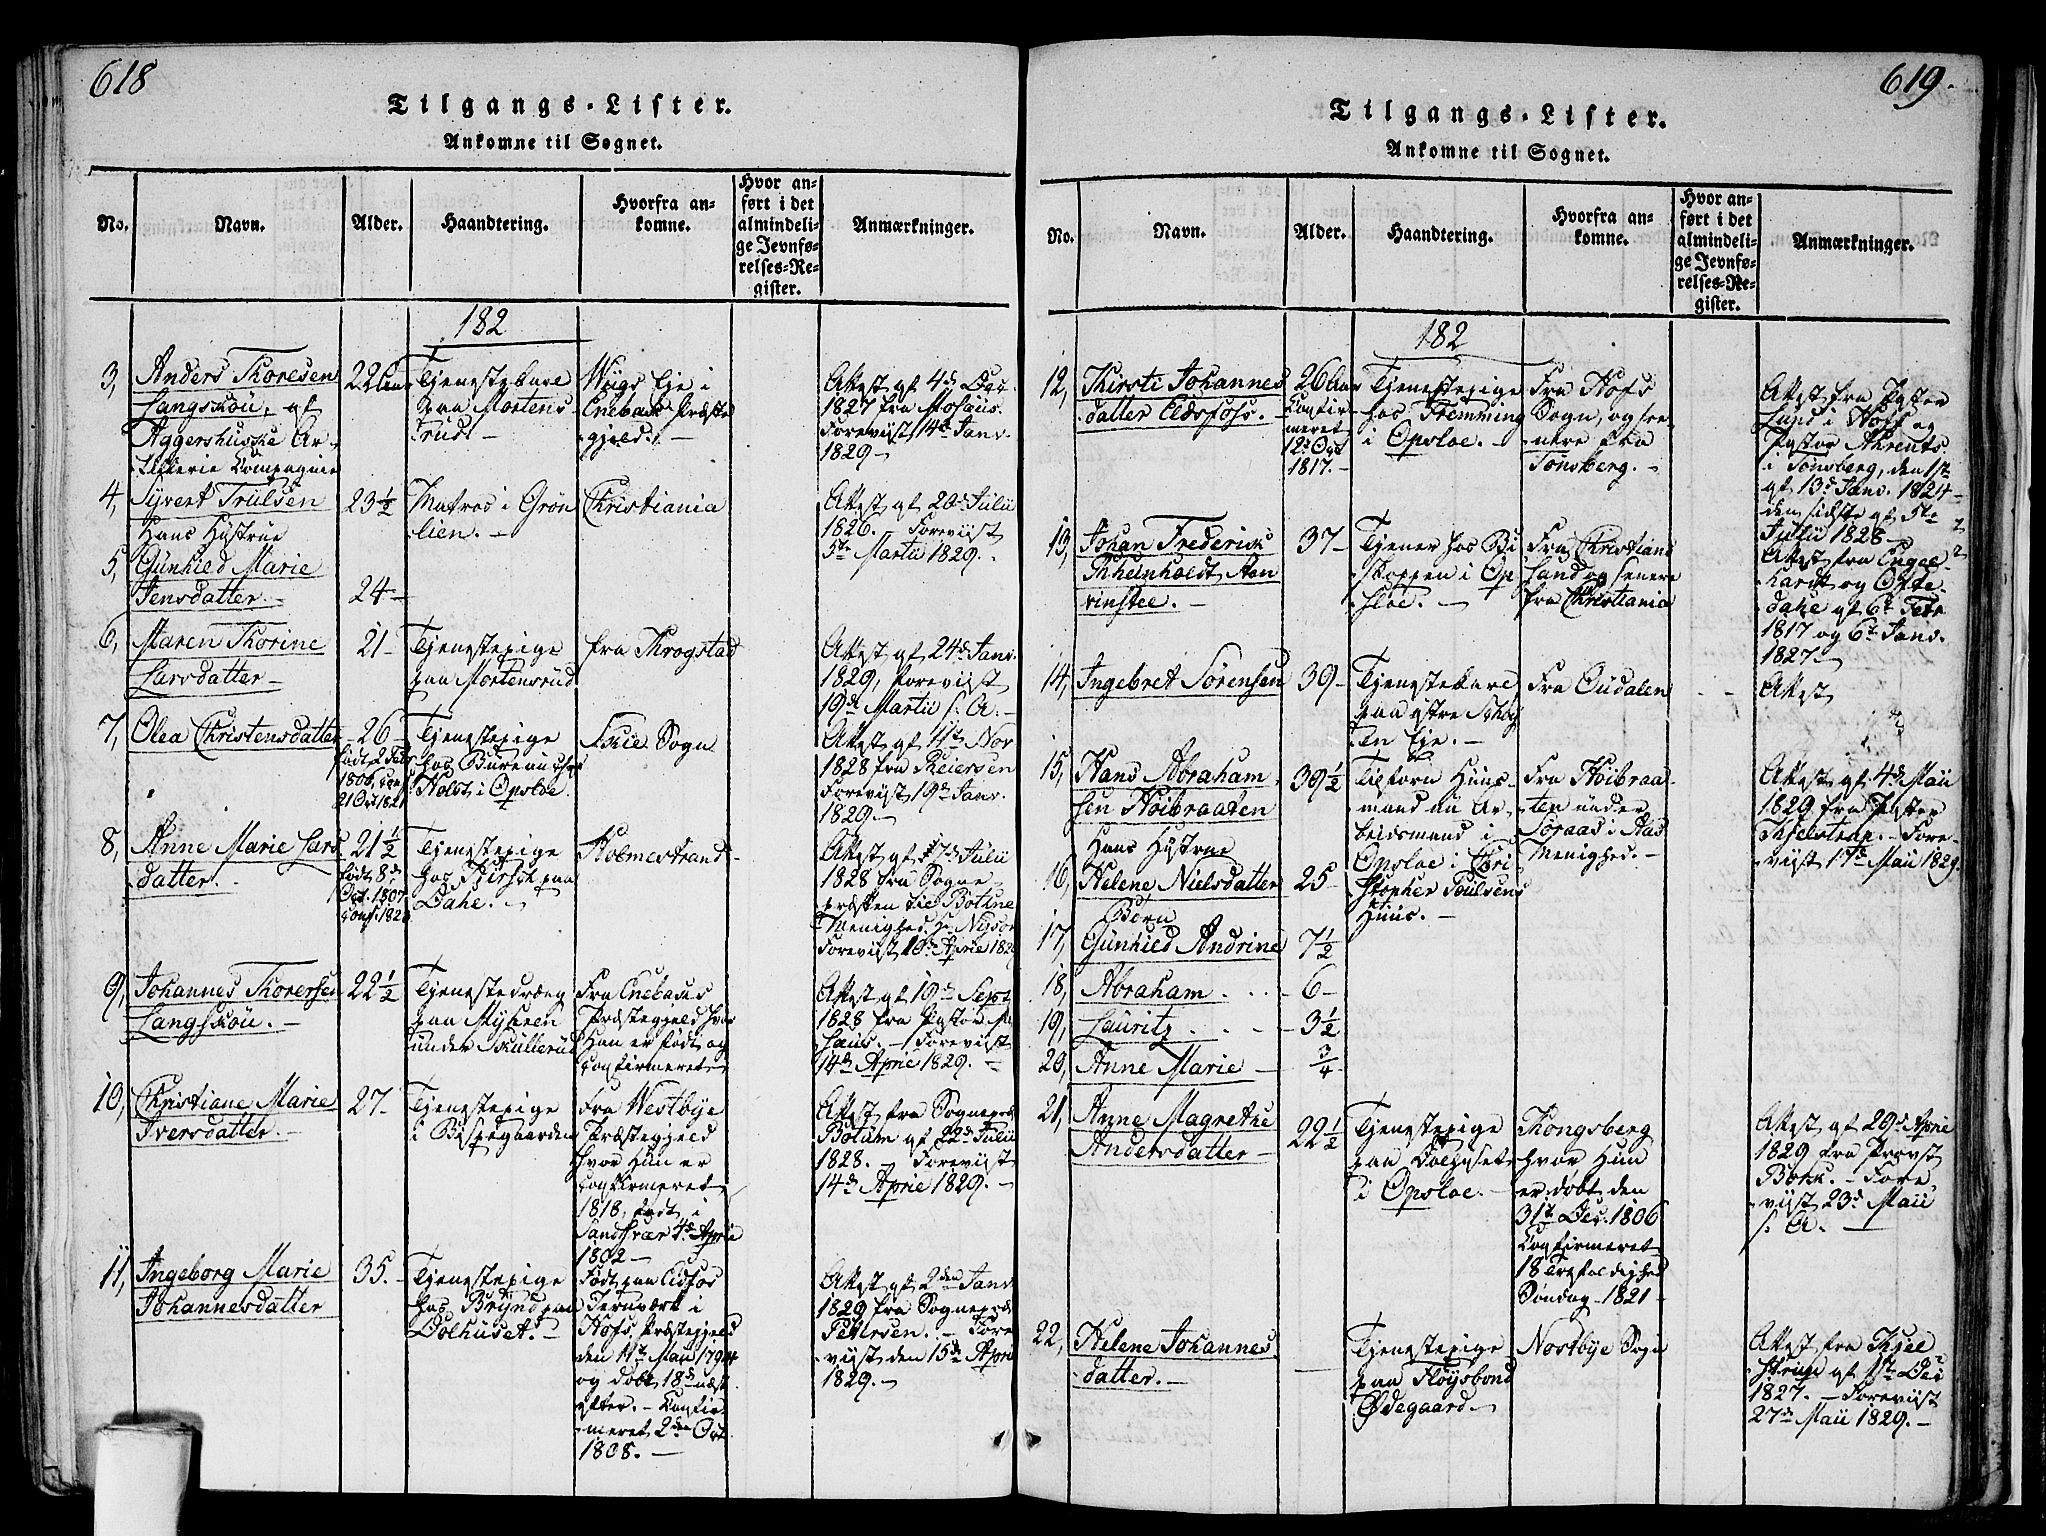 618
Tilgangs-Lister.
Ankomne til Sognet.
No.
Navn.
Alder.
Haandtering.
Hvorfra an-
komne.
Hvor an-
ført i det
almindeli-
ge Jevnfø-
relses-Re-
gister.
Anmærkninger.
182
3, Anders Thoresen
Langskou, af
Aggershusske Ar-
tillerie Compagnie
22 aar
Tjenestekare
paa Mortens
rud
Wiigs Eje i
Enebak Præste
gjeld. -
Attest af 4de Dec.
1827 fra
Foreviist 14de Janv.
1829 -
4, Syvert Trulsen
23 1/2
Matros i Grøn
lien. -
Christiania
Attest af 20de Julii
1826. - Foreviist
5te Martii 1829. -
Hans Hustrue
5, Gunhild Marie
Jensdatter -
24 -
6, Maren Thorine
Larsdatter -
21 -
Tjenestepige
paa Mortensrud
fra Throgstad
Attest af 24de Janv.
1829, foreviist
19de Martii s. A. -
7, Olea Christensdatter
26 -
født 2 Febr
1803, conf.
21 Oct 1821
Tjenestepige
hos Bureauchef
Holst i Opsloe.
Skie Sogn
Attest af 11te Nov
1828 fra Theiersen
Foreviist 19de Janv.
1829. -
8, Anne Marie Lars
datter. -
21 1/2
født 8de
Oct. 1807
conf. 182
Tjenestepige
hos paa
Dahl. -
Holmestrand -
Attest af 17de Julii
1828 fra Sogne-
præsten til Botne
Menighed H.
Foreviist 10de April 1829
9, Johannes Thoresen
Langskou. -
22 1/2
Tjenestedreng
paa Myhren
under Skullerud
Fra Enebaks
Præstegjeld hvor
Han er født og
Confirmeret -
Attest af 19de Sept
1828 fra Pastor
- Foreviist
14de April 1829. -
10, Christiane Marie
Iversdatter. -
27 -
Tjenestepige
i Bispegaarden
Fra Westbye
Præstegjeld
hvor Hun er
Confirmeret
1818, født i
Sandsvær 4de April
1802 -
Attest fra Sognepræ
Botum af 22de Julii
1828. - Foreviist
14de April 1829. -
11, Ingeborg Marie
Johannesdatter
35. -
Tjenestepige
hos Brynd paa
Dolhuset. -
Født paa Eidfos
Jernværk i
Hofs Præstegjeld
den 11te Maii 1794
og døbt 18de næst
efter. - Confir-
meret 2den Oct
1808. -
Attest af 2den Janv.
1829 fra Sognepræ
Petersen. - Fore
viist den 15de April
1829. -
619.
Tilgangs-Lister.
Ankomne til Sognet.
No.
Navn.
Alder.
Haandtering.
Hvorfra an-
komne.
Hvor an-
ført i det
almindeli-
ge Jevnfø-
relses-Re-
gister.
Anmærkninger.
182
12, Kirsti Johannes
datter Eidsfoss. -
26 aar
Confir-
meret
12te Oct
1817. -
Tjenestepige
hos Fremming
i Opsloe. -
Fra Hofs
Sogn, og se-
nere fra
Tønsberg. -
Attest fra Pastor
Lund i Hoff og
Pastor Ahrents
i Tønsberg, den 1ste
af 13de Janv. 1824 -
den sidste af 5te
Julii 1828 -
13, Johan Frederik
Rheinholdt
37 -
Tjener hos Bi
skoppen i Op
sloe. -
Fra Christians
sand og senere
fra Christiania
Attest fra Engel-
hardt og
dahl af 6te Febr
1817 og 6te Janv.
1827. -
14, Ingebret Sørensen
39 -
Tjenestekare
paa østre
ten Eje. -
Fra Oudalen
Attest
15, Hans Abraham
sen Hoibraaten
39 1/2
Tilforn Huus-
mand nu Ar-
beidsmand i
Opsloe i Chri
stopher Poulsens
Huus. -
Fra Hoibraa-
ten under
Soraas i Aas
Menighed. -
Attest af 4de Maii
1829 fra Pastor
Kjelstrup. - Fore-
viist 17de Maii 1829.
Hans Hustrue
16, Helene Nielsdatter
25 -
Børn
17, Gunhild Andrine
7 1/2
18, Abraham . . .
6 -
19, Lauritz . - -
3 1/2
20, Anne Marie -
3/4
21, Anne Magrethe
Andersdatter -
22 1/2
Tjenestepige
paa Dolhuset
i Opsloe. -
Kongsberg
hvor Hun
er døbt den
31te Dec. 1806
Confirmeret
18 Trefoldighed
Søndag 1821 -
Attest af 29de April
1829 fra Provst
Bork. - Fore-
viist 23de Maii
s. A. -
22, Helene Johannes
datter. -
-
Tjenestepige
paa Floysbond
Ødegaard. -
Nostbye Sogn
Attest fra Kjel
strup af 1ste Dec
1827. - Foreviist
27de Maii 1829. -